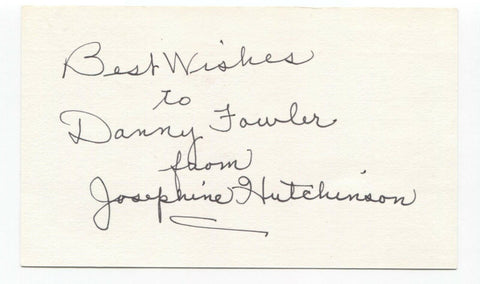 Best Wishes
to
Danny Fowler
from
Josephine Hutchinson